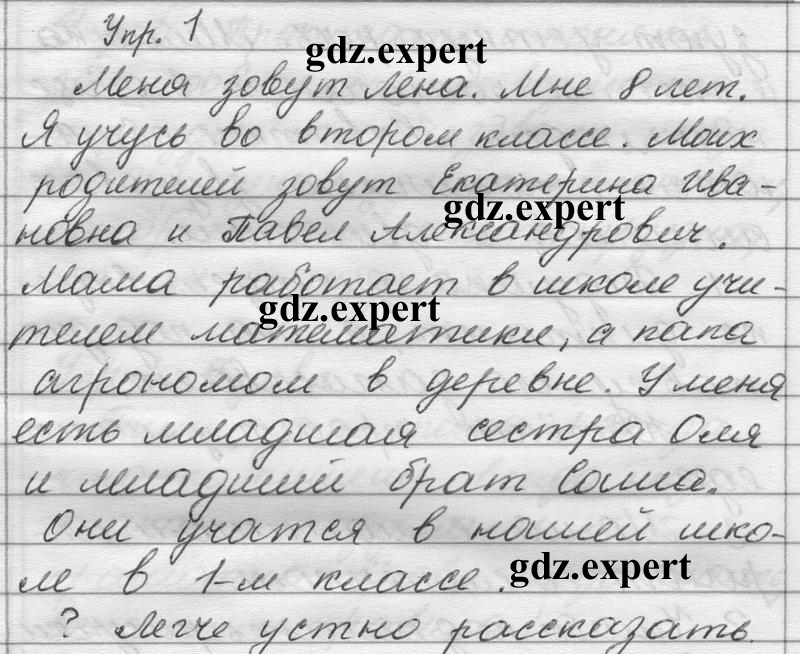 Упр. 1
gdz.expert
Меня зовут Лена. Мне 8 лет.
Я учусь во втором классе. Моих
родителей зовут Екатерина Ива-
gdz.expert
новна и Павел Александрович.
Мама работает в школе учи-
gdz.expert
телем математики, а папа
агрономом в деревне. У меня
есть младшая сестра Оля
и младший брат Саша.
Они учатся в нашей шко-
ле в 1-м классе.
gdz.expert
? Легче устно рассказать.